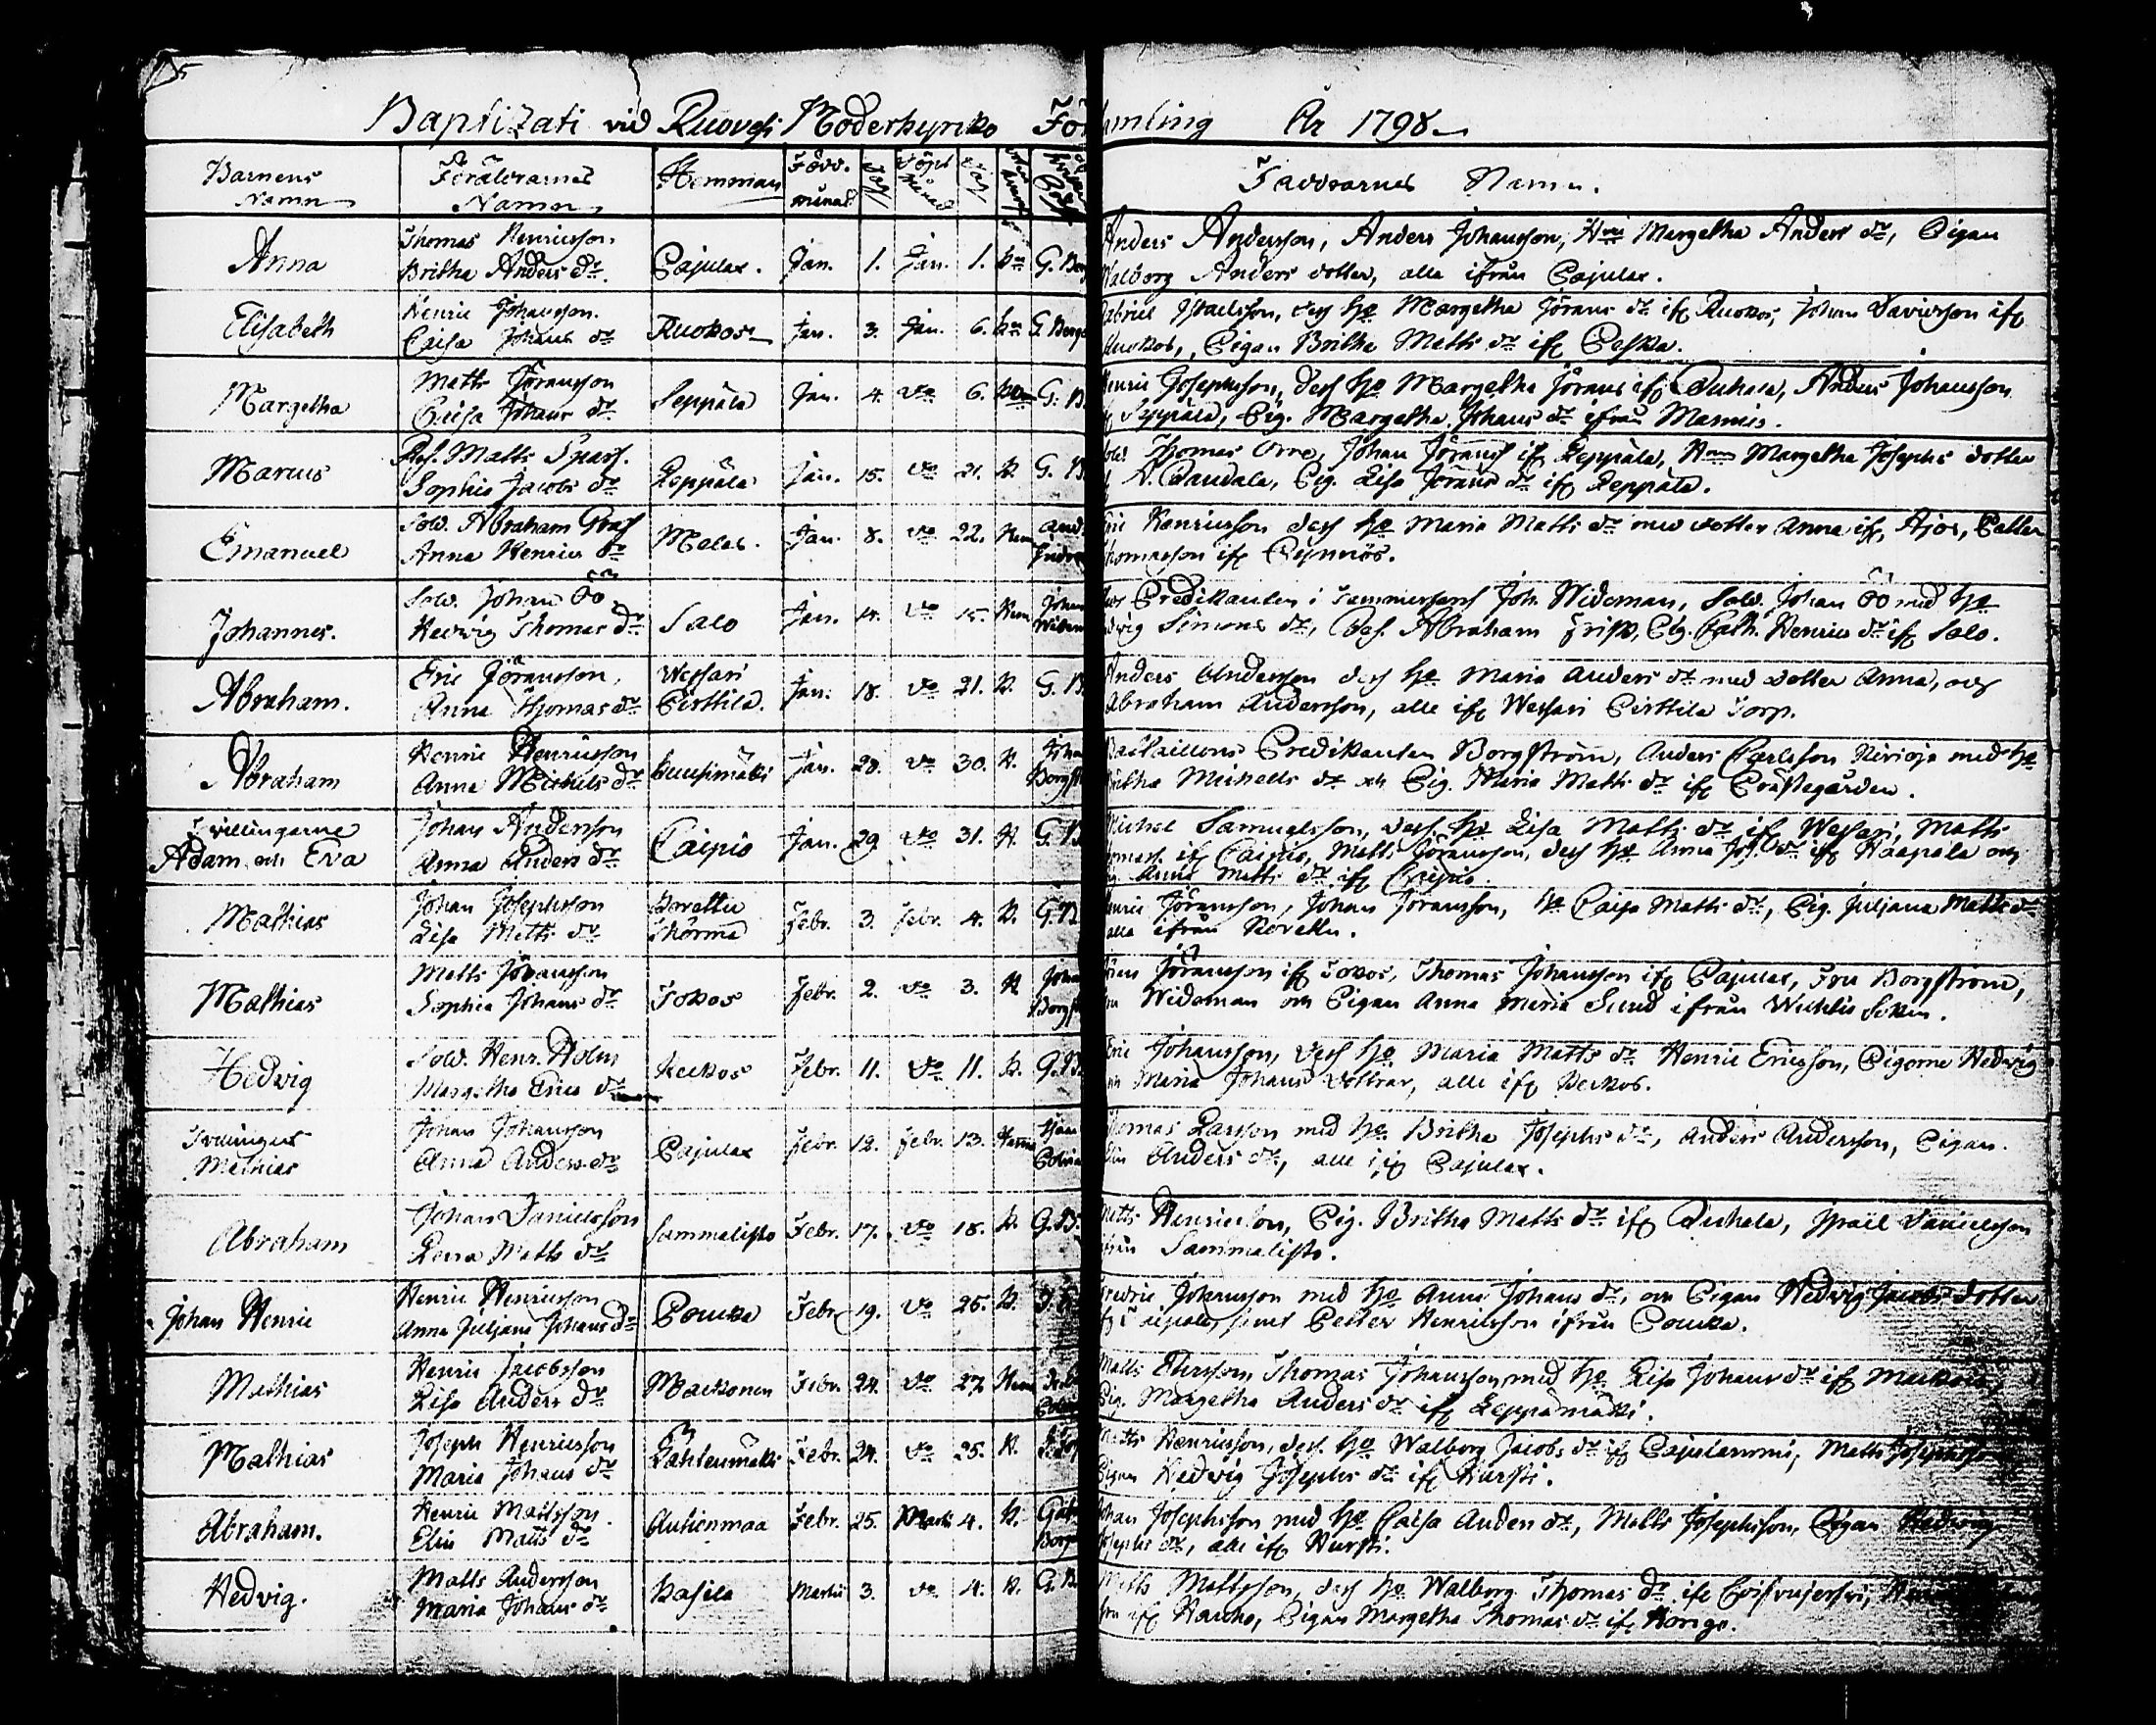 Baptizati vid Ruovesi Moderkyrko Församling År 1798
Barnens Namn
Föräldrarnes Namn
Hemman
Född. månad
dag
Döpt månad
dag
Faddrarnes Namn.
Anna
Thomas Henricsson.
Britha Anders dr.
Pajulax. Jan. 1. Jan. 1. G. Berg
Anders Andersson, Anders Johansson, Hni Margetha Anders dr, Pigan
Walborg Anders dotter, alla ifrån Pajulax.
Elisabeth
Henric Johansson.
Caisa Johans dr
Ruokos Jan. 3. Jan. 6. G. Bergs
Gabriel Israelsson, dess ho Margetha Jörans dr ifr Ruokos, Johan Davidsson ifr
Ruokos, Pigan Britha Matts dr ifr Peska.
Margetha
Matts Jöransson
Caisa Johans dr
Seppälä Jan. 4. do 6. G. B.
Henric Josephsson, dess ho Margetha Jörans ifr Ruhala, Anders Johansson
Seppälä, Pig. Margetha Johans dr ifrån Mannis.
Marcus
Matts Sparf.
Sophia Jacobs dr
Leppälä Jan. 15. do 21. K. G. B.
Thomas Orre, Johan Jöranss ifr Leppälä, Margetha Josephs dotter
Pig. Lisa Jörans dr ifr Leppälä.
Emanuel
Sold. Abraham
Anna Henrics dr
Melas. Jan. 8. do 22. Hem
Henricsson dess ho Maria Matts dr med dotter Anna ifr. Ajos, Petter
Thomasson ifr Pynnös.
Johannes.
Sold. Johan Öö
Hedvig Thomas dr
Salo Jan. 14. do 15. Hem
Predikanten i Tammerfors Joh. Wideman, Sold. Johan Öö med ho
Hedvig Simons dr, Abraham Frisk, Pig. Cath. Henrics dr ifr Salo.
Abraham.
Eric Jöransson,
Anna Thomas dr
Wessari
Pirttilä. Jan. 18. do 21. K. G. B.
Anders Andersson dess ho Maria Anders dr med dotter Anna, och
Abraham Andersson, alle ifr Wessari Pirttilä Torp.
Abraham
Henric Henricsson
Anna Michels dr
Kuusimäki Jan. 28. do 30. K. Johan Borgst
Bataillons Predikanten Borgström, Anders Carlsson Kirioja med ho
Britha Michells dr och Pig. Maria Matts dr ifr Prästegården.
Tvillingarne
Adam och Eva
Johan Andersson
Anna Anders dr
Paipio Jan. 29. do 31. K. G. B
Michel Samuelsson, dess ho Lisa Matts dr ifr Wessari, Matts
Thomass. ifr Paipio, Matts Jöransson, dess ho Anna Jos. dr ifr Haapala och
Anna Matts dr ifr Paipio.
Mathias
Johan Josephsson
Lisa Matts dr
Korettu
Febr. 3. Febr. 4. K. G. B
Henric Jöransson, Johan Jöransson, ho Caisa Matts dr, Pig. Juljana Matts dr
alla ifrån Korettu.
Mathias
Matts Jöransson
Sophia Johans dr
Tokos Febr. 2. do 3. K Johan Borgst
Jöransson ifr Tokos, Thomas Johansson ifr Pajulax, Fru Borgström,
Fru Wideman och Pigan Anna Maria Sund ifrån Wichtis Soken.
Hedvig
Sold. Henr. Holm
Margetha Erics dr
Keckos Febr. 11. do 11. K. G. B.
Eric Johansson, dess ho Maria Matts dr Henric Ericsson, Pigorne Hedvig
och Maria Johans dottrar, alle ifr Keckos.
Tvillingen
Mathias
Johan Johansson
Anna Anders dr
Pajulax Febr. 12. Febr. 13. Hemma
Thomas Larsson med ho Britha Josephs dr, Anders Andersson, Pigan
Elin Anders dr, alle ifr Pajulax.
Abraham
Johan Danielsson
Lena Matts dr
Sammalisto Febr. 17. do 18. K. G. B.
Matts Henricsson, Pig. Britha Matts dr ifr Ruhala, Israël Danielsson
ifrån Sammalisto.
Johan Henric
Henric Henricsson
Anna Juljana Johans dr
Pouka Febr. 19. do 25. K.
Fredric Johansson med ho Anna Johans dr, och Pigan Hedvig Jacobs dotter
samt Petter Henricsson ifrån Pouka.
Mathias
Henric Jacobsson
Lisa Anders dr
Mackonen Febr. 24. do 27. Hem
Matts Thomas Johansson med ho Lisa Johans dr ifr
Pig. Margetha Anders dr ifr Leppämäki.
Mathias
Joseph Henricsson
Maria Johans dr
Lahdenmäki Febr. 24. do 25. K.
Matts Henricsson, dess ho Walborg Jacobs dr ifr Pajulammi, Matts Josephsson
Pigan Hedvig Josephs dr ifr Hursti.
Abraham.
Henric Mattsson.
Elin Matts dr
Auhenmaa Febr. 25. Martii 4. K.
Johan Josephsson med ho Caisa Anders dr, Matts Josephsson, Pigan Hedvig
Josephs dr, alle ifr Hursti.
Hedvig.
Matts Andersson
Maria Johans dr
Kasila Martii 3. do 4. K. G. B
Matts Mattsson, dess ho Walborg Thomas dr ifr
Pigan Margetha Thomas dr ifr